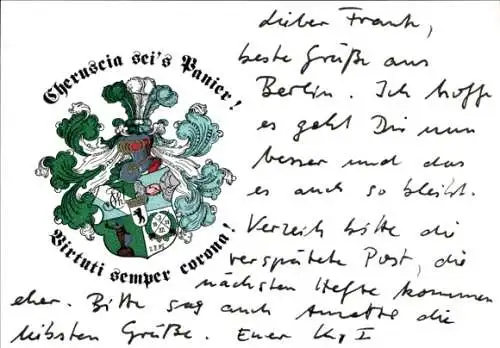 Cheruscia sei's Panier!
Virtuti semper corona!
Lieber Frank,
beste Grüße aus
Berlin. Ich hoffe
es geht Dir nun
besser und das
es auch so bleibt.
Verzeih bitte die
verspätete Post, die
nächsten Hefte kommen
eher. Bitte sag auch Annette die
liebsten Grüße. Euer